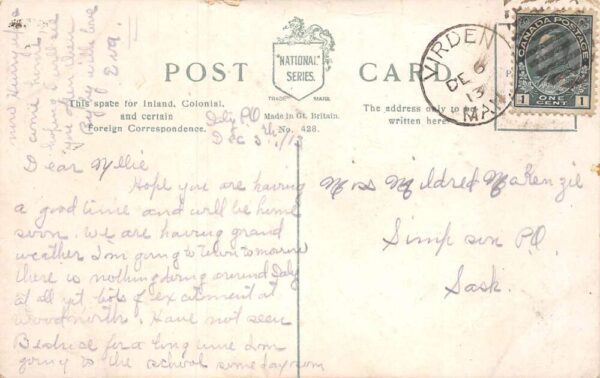 POST CARD
"NATIONAL"
SERIES.
TRADE MARK.
This space for Inland, Colonial,
and certain
Foreign Correspondence.
Made in Gt. Britain.
No. 428.
The address only to be
written here.
CANADA POSTAGE
1 ONE CENT 1
VIRDEN
DE 6
13
MAN
Daly P.O.
Dec 5th/13
Dear
Hope you are having
a good time and will be home
soon. We are having grand
weather I'm going to town tomorrow
there is nothing doing around Daly
at all yet lots of excitement at
Woodnorth. Have not seen
Beatrice for a long time I'm
going to the school some day soon
now Hurry
come home
hoping
you
Bye bye with love
Miss Mildred McKenzie
Simpson P.O.
Sask.